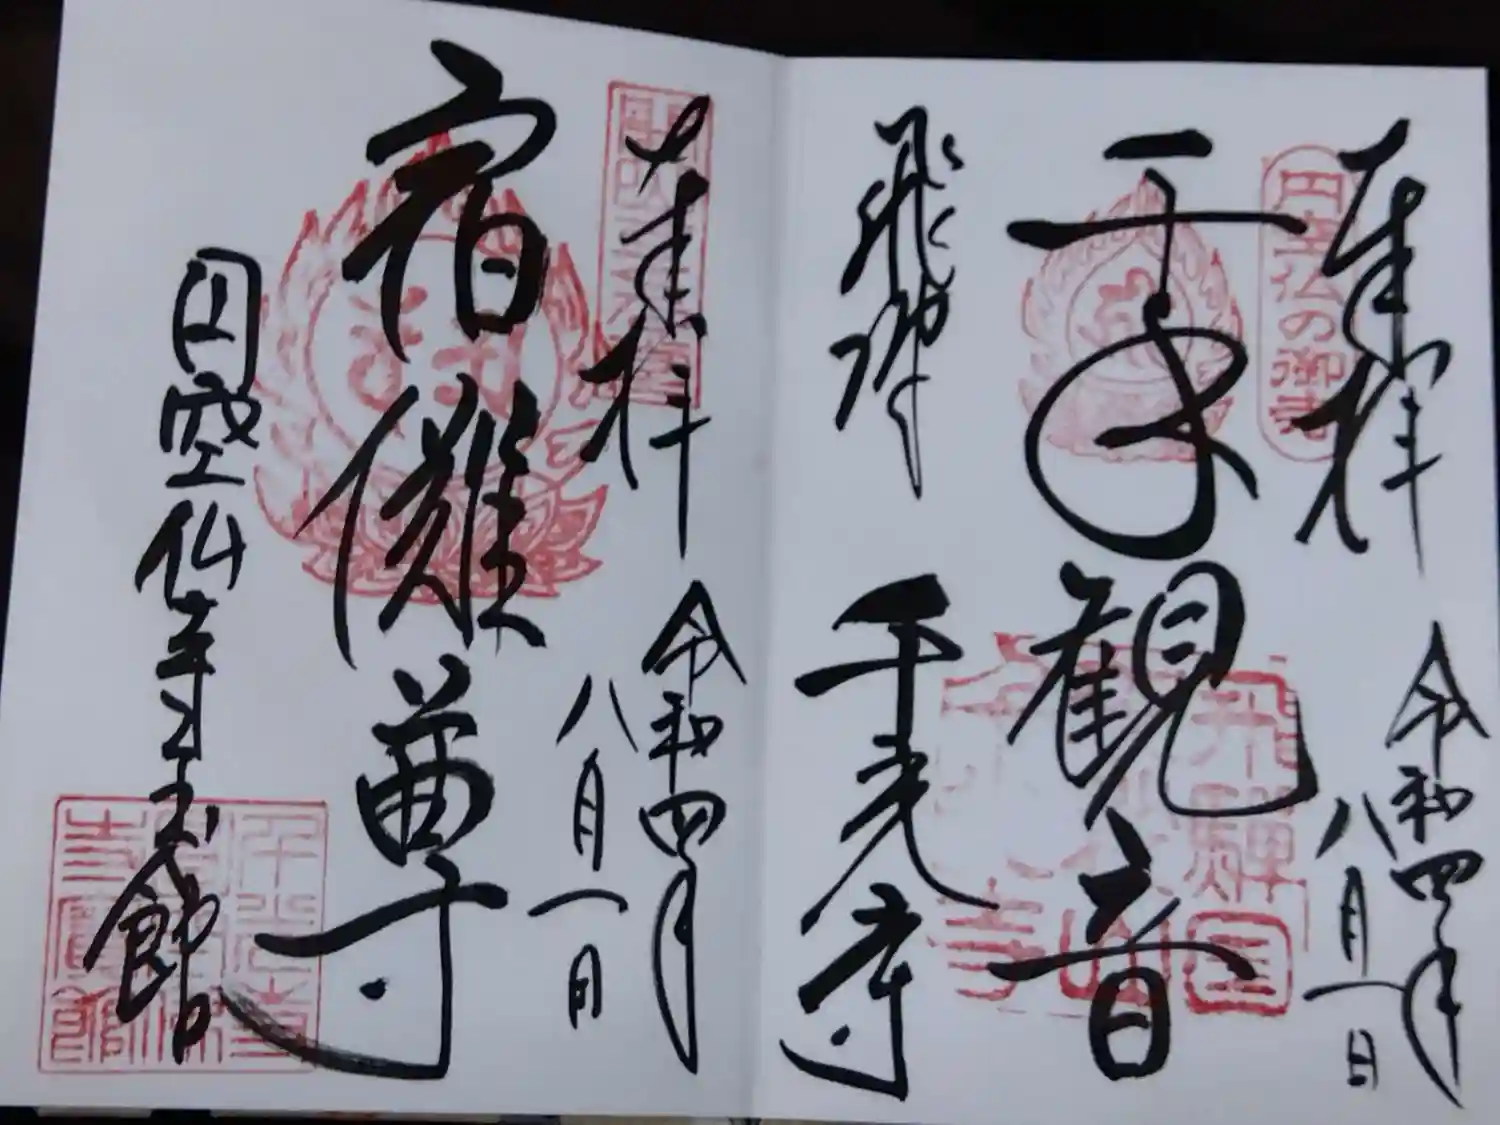 奉拝
令和四年
八月一日
円空仏の御寺
千手観音
飛騨
千光寺
奉拝
令和四年
八月一日
宿儺尊
円空仏寺宝館